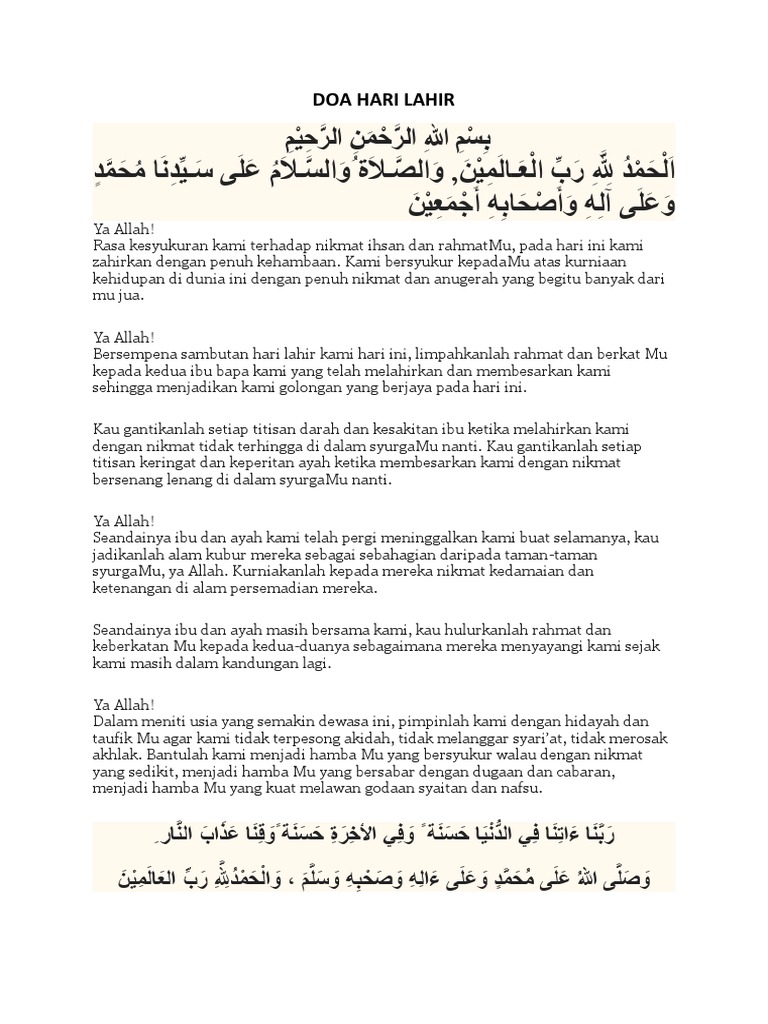 DOA HARI LAHIR
بِسْمِ اللهِ الرَّحْمَنِ الرَّحِيْمِ
اَلْحَمْدُ لِلَّهِ رَبِّ الْعَـالَمِيْنَ, وَالصَّـلاَة ُوَالسَّـلاَمُ عَلَى سَـيِّدِنَا مُحَمَّدٍ
وَعَلَى آلِـهِ وَأَصْحَابِـهِ أَجْمَعِيْنَ
Ya Allah!
Rasa kesyukuran kami terhadap nikmat ihsan dan rahmatMu, pada hari ini kami
zahirkan dengan penuh kehambaan. Kami bersyukur kepadaMu atas kurniaan
kehidupan di dunia ini dengan penuh nikmat dan anugerah yang begitu banyak dari
mu jua.
Ya Allah!
Bersempena sambutan hari lahir kami hari ini, limpahkanlah rahmat dan berkat Mu
kepada kedua ibu bapa kami yang telah melahirkan dan membesarkan kami
sehingga menjadikan kami golongan yang berjaya pada hari ini.
Kau gantikanlah setiap titisan darah dan kesakitan ibu ketika melahirkan kami
dengan nikmat tidak terhingga di dalam syurgaMu nanti. Kau gantikanlah setiap
titisan keringat dan keperitan ayah ketika membesarkan kami dengan nikmat
bersenang lenang di dalam syurgaMu nanti.
Ya Allah!
Seandainya ibu dan ayah kami telah pergi meninggalkan kami buat selamanya, kau
jadikanlah alam kubur mereka sebagai sebahagian daripada taman-taman
syurgaMu, ya Allah. Kurniakanlah kepada mereka nikmat kedamaian dan
ketenangan di alam persemadian mereka.
Seandainya ibu dan ayah masih bersama kami, kau hulurkanlah rahmat dan
keberkatan Mu kepada kedua-duanya sebagaimana mereka menyayangi kami sejak
kami masih dalam kandungan lagi.
Ya Allah!
Dalam meniti usia yang semakin dewasa ini, pimpinlah kami dengan hidayah dan
taufik Mu agar kami tidak terpesong akidah, tidak melanggar syari’at, tidak merosak
akhlak. Bantulah kami menjadi hamba Mu yang bersyukur walau dengan nikmat
yang sedikit, menjadi hamba Mu yang bersabar dengan dugaan dan cabaran,
menjadi hamba Mu yang kuat melawan godaan syaitan dan nafsu.
رَبَّنَا ءَاتِنَا فِي الدُّنْيَا حَسَنَة ً وَفِي الأخِرَةِ حَسَنَة ًوَقِنَا عَذَابَ النَّار ِ
وَصَلَّى اللهُ عَلَى مُحَمَّدٍ وَعَلَى ءَالِهِ وَصَحْبِهِ وَسَلَّمَ ، وَالْحَمْدُلِلَّهِ رَبِّ العَالَمِيْنَ